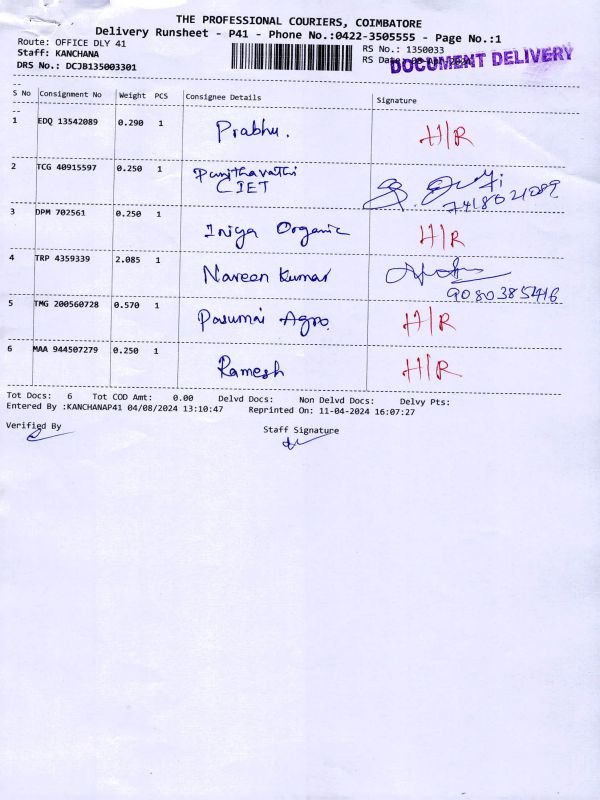 THE PROFESSIONAL COURIERS, COIMBATORE
Delivery Runsheet - P41 - Phone No.:0422-3505555 - Page No.:1
Route: OFFICE DLY 41
Staff: KANCHANA
DRS No.: DCJB135003301
RS No.: 1350033
RS Date:
DOCUMENT DELIVERY
S No Consignment No Weight PCS Consignee Details Signature
1 EDQ 13542089 0.290 1 Prabhu. H/R
2 TCG 40915597 0.250 1 Punithavathi
CIET
7418021089
3 DPM 702561 0.250 1 Iniya Organic H/R
4 TRP 4359339 2.085 1 Naveen Kumar
9080385416
5 TMG 200560728 0.570 1 Pasumai Agro. H/R
6 MAA 944507279 0.250 1 Ramesh H/R
Tot Docs: 6 Tot COD Amt: 0.00 Delvd Docs: Non Delvd Docs: Delvy Pts:
Entered By :KANCHANAP41 04/08/2024 13:10:47 Reprinted On: 11-04-2024 16:07:27
Verified By Staff Signature